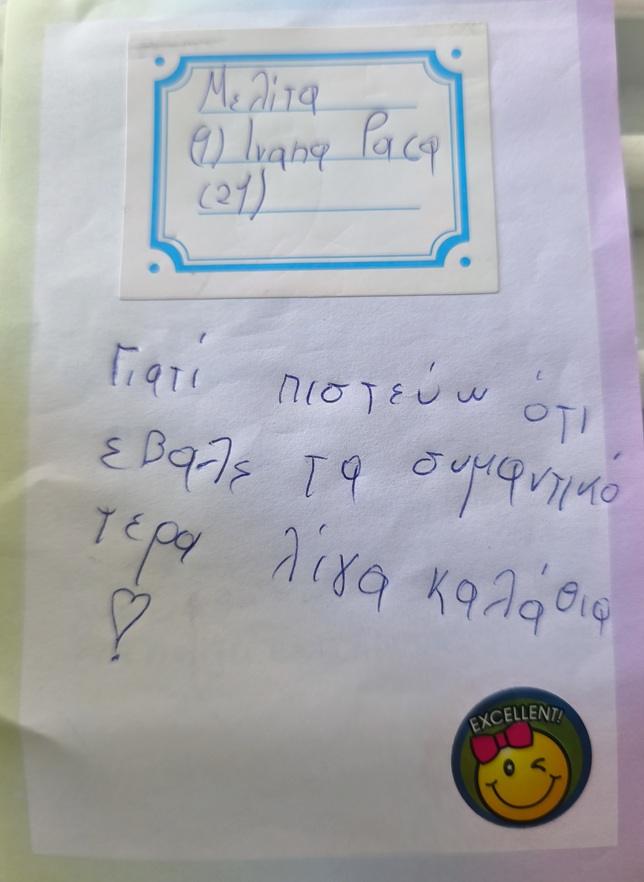 Μελίτα
(9) Ivana Ραca
(21)
Γιατί πιστεύω ότι
εβαλε τα συμαντικό
τερα λίγα καλάθια
EXCELLENT!